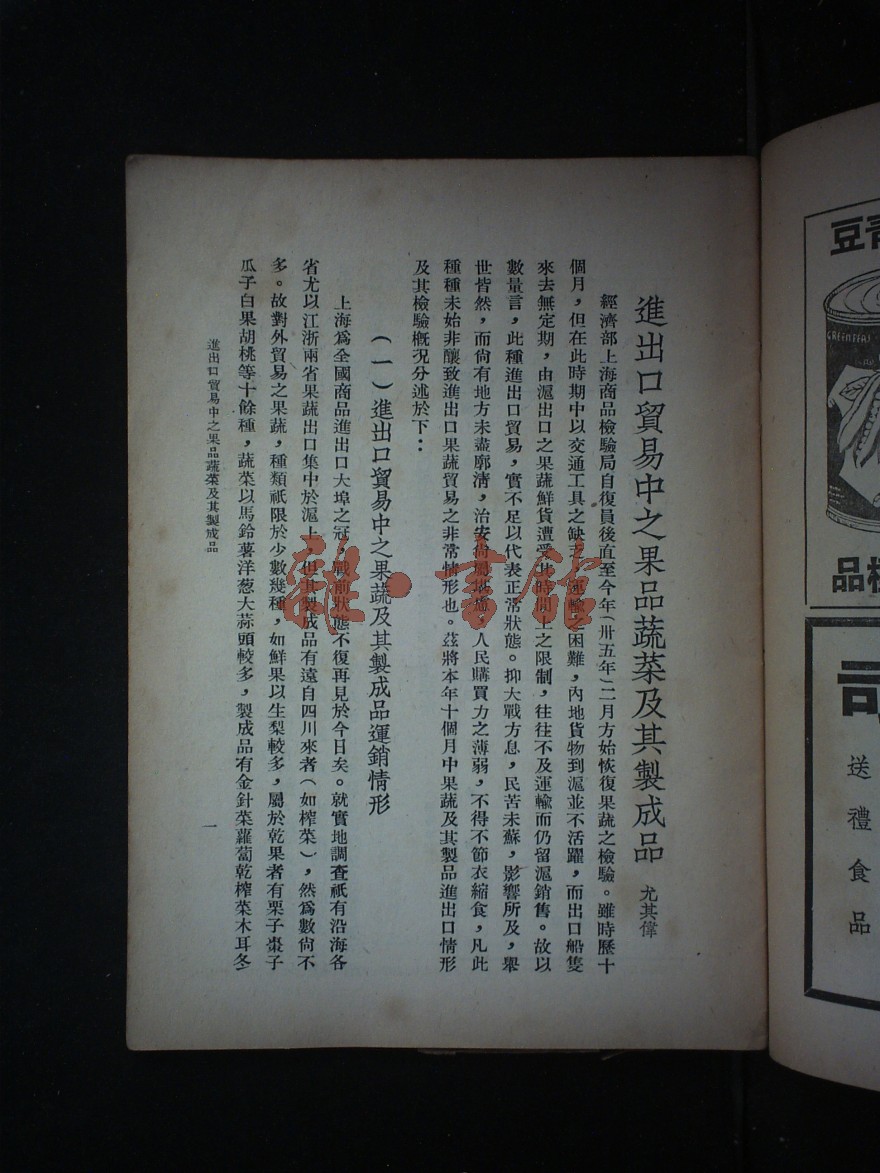 青豆
GREEN PEAS
品
司
送禮食品
進出口貿易中之果品蔬菜及其製成品 尤其偉
經濟部上海商品檢驗局自復員後直至今年(卅五年)二月方始恢復果蔬之檢驗。雖時歷十
個月,但在此時期中以交通工具之缺乏,運輸之困難,內地貨物到滬並不活躍,而出口船隻
來去無定期,由滬出口之果蔬鮮貨遭受此時間上之限制,往往不及運輸而仍留滬銷售。故以
數量言,此種進出口貿易,實不足以代表正常狀態。抑大戰方息,民苦未蘇,影響所及,舉
世皆然,而尙有地方未盡廓清,治安尙屬堪虞,人民購買力之薄弱,不得不節衣縮食,凡此
種種未始非釀致進出口果蔬貿易之非常情形也。茲將本年十個月中果蔬及其製品進出口情形
及其檢驗槪況分述於下:
(一)進出口貿易中之果蔬及其製成品運銷情形
上海爲全國商品進出口大埠之冠,戰前狀態不復再見於今日矣。就實地調查祇有沿海各
省尤以江浙兩省果蔬出口集中於滬上,但其製成品有遠自四川來者(如榨菜),然爲數尙不
多。故對外貿易之果蔬,種類祇限於少數幾種,如鮮果以生梨較多,屬於乾果者有栗子棗子
瓜子白果胡桃等十餘種,蔬菜以馬鈴薯洋葱大蒜頭較多,製成品有金針菜蘿蔔乾榨菜木耳冬
進出口貿易中之果品蔬菜及其製成品
一
雜·書館